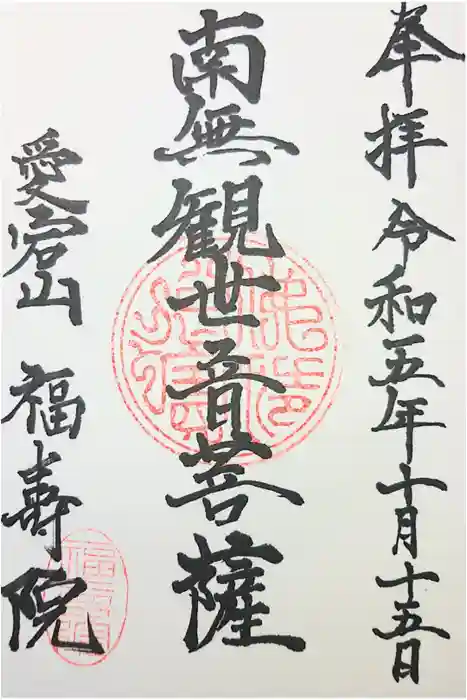 奉拝 令和五年十月十五日
南無観世音菩薩
愛宕山 福寿院